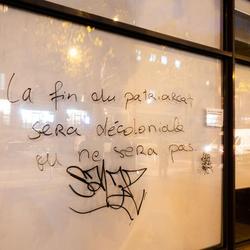 La fin du patriarcat
sera décoloniale
ou ne sera pas